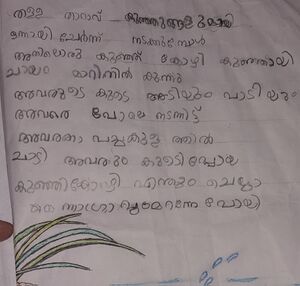 തള്ള താറാവ് കുഞ്ഞുങ്ങളുമായി
ഒന്നായി ചേർന്ന് നടക്കുമ്പോൾ
അതിലൊരു കുഞ്ഞ് കോഴി കുഞ്ഞായി
ചായം മാറിനിൽ കുന്നു
അവരുടെ കൂടെ അടിയും പാടിയും
അവരെ പോലെ നടന്നിട്ട്
അവരതാ പച്ചകുള ത്തിൽ
ചാടി അവരും കൂടി പോയ
കുഞ്ഞികോഴി എന്തും ചെയ്യാ
പോയി